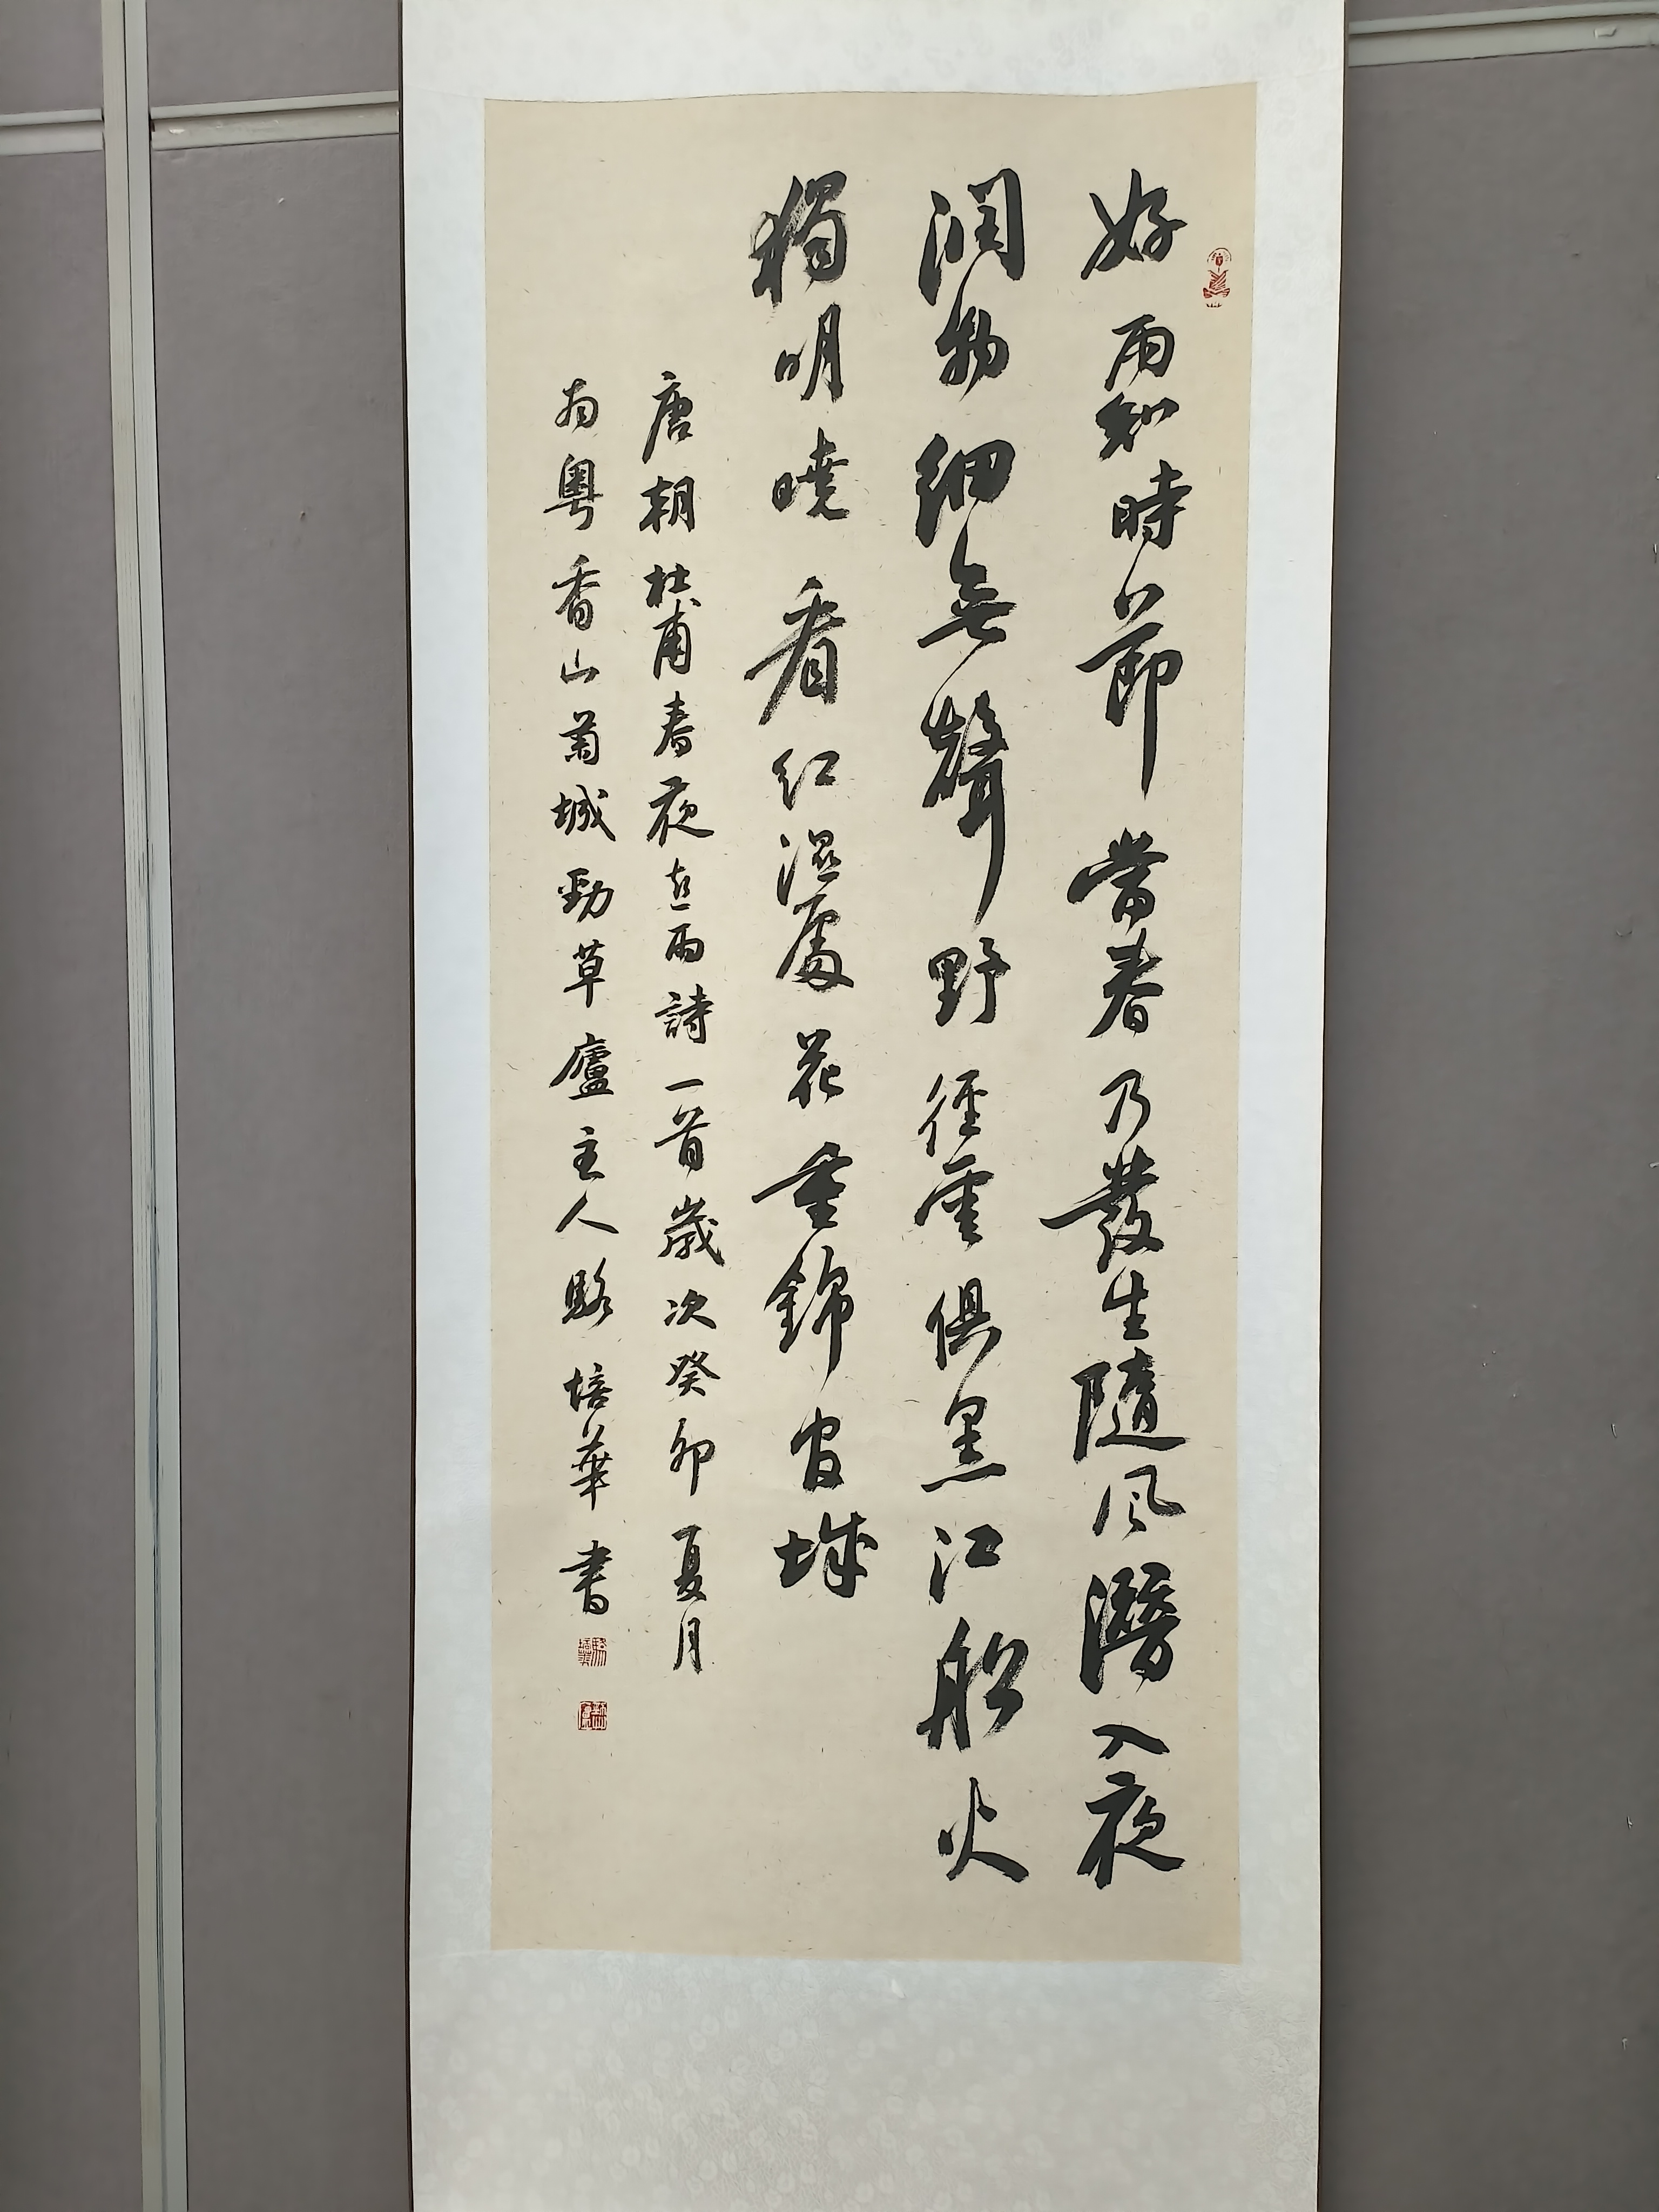 好雨知時節當春乃發生隨风潛入夜
潤物細無聲野徑雲俱黑江船火
獨明曉看红濕處花重錦官城
唐朝杜甫春夜喜雨詩一首歲次癸卯夏月
於粵香山菊城勁草廬主人駱培華書